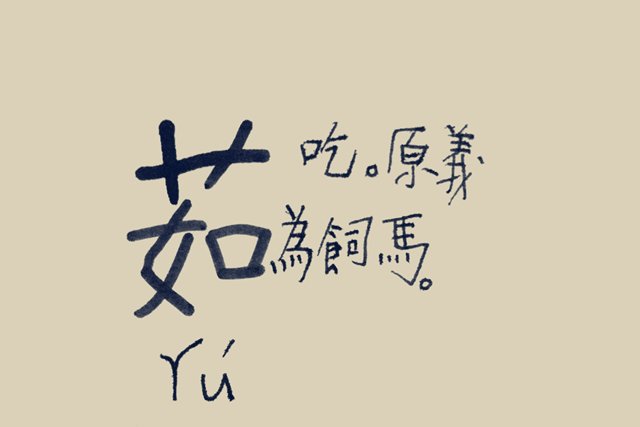 茹
吃。原義
為飼馬。
rú